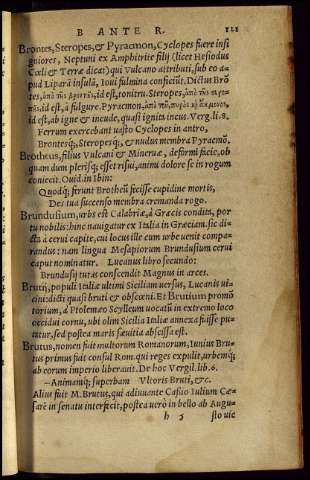 B ANTE R. 121
Brontes, Steropes, & Pyracmon, Cyclopes fuere insi
gniores, Neptuni ex Amphitrite filij (licet Hesiodus
Cœli & Terræ dicat) qui Vulcano attributi, sub eo a-
pud Liparā insulā, Ioui fulmina conficiūt. Dictus Brō
tes, ἀπὸ τῆς βροντῆς, id est, tonitru. Steropes, ἀπὸ τῆς
id est, à fulgure. Pyracmon, ἀπὸ τοῦ πυρὸς
id est, ab igne & incude, quasi ignitus incus. Verg. li. 8.
Ferrum exercebant uasto Cyclopes in antro,
Brontesq́;, Steropesq́;, & nudus membra Pyracmō.
Brotheus, filius Vulcani & Mineruæ, deformi facie, ob
quam dum plerisq́; esset risui, animi dolore se in rogum
coniecit. Ouid. in Ibin:
Quodq́; ferunt Brotheū fecisse cupidine mortis,
Des tua succenso membra cremanda rogo.
Brundusium, urbs est Calabriæ, à Græcis condita, por
tu nobilis: hinc nauigatur ex Italia in Græciam. sic di-
cta à cerui capite, cui locus ille cum urbe uenit compa-
randus: nam lingua Mesapiorum Brundusium cerui
caput nominatur. Lucanus libro secundo:
Brundusij tutas conscendit Magnus in arces.
Brutij, populi Italiæ ultimi Siciliam uersus, Lucanis ui-
cini: dicti quasi bruti & obscœni. Et Brutium promō
torium, à Ptolemæo Scylleum uocatū in extremo loco
occidui cornu, ubi olim Sicilia Italiæ annexa fuisse pu-
tatur, sed postea maris sæuitia abscissa est.
Brutus, nomen fuit multorum Romanorum, Iunius Bru-
tus primus fuit consul Rom. qui reges expulit, urbemq́;
ab eorum imperio liberauit. De hoc Vergil. lib. 6.
—Animamq́; superbam Vltoris Bruti, &c.
Alius fuit M. Brutus, qui adiuuante Cassio Iulium Cæ-
sarē in senatu interfecit, postea uerò in bello ab Augu-
h 5 sto uic